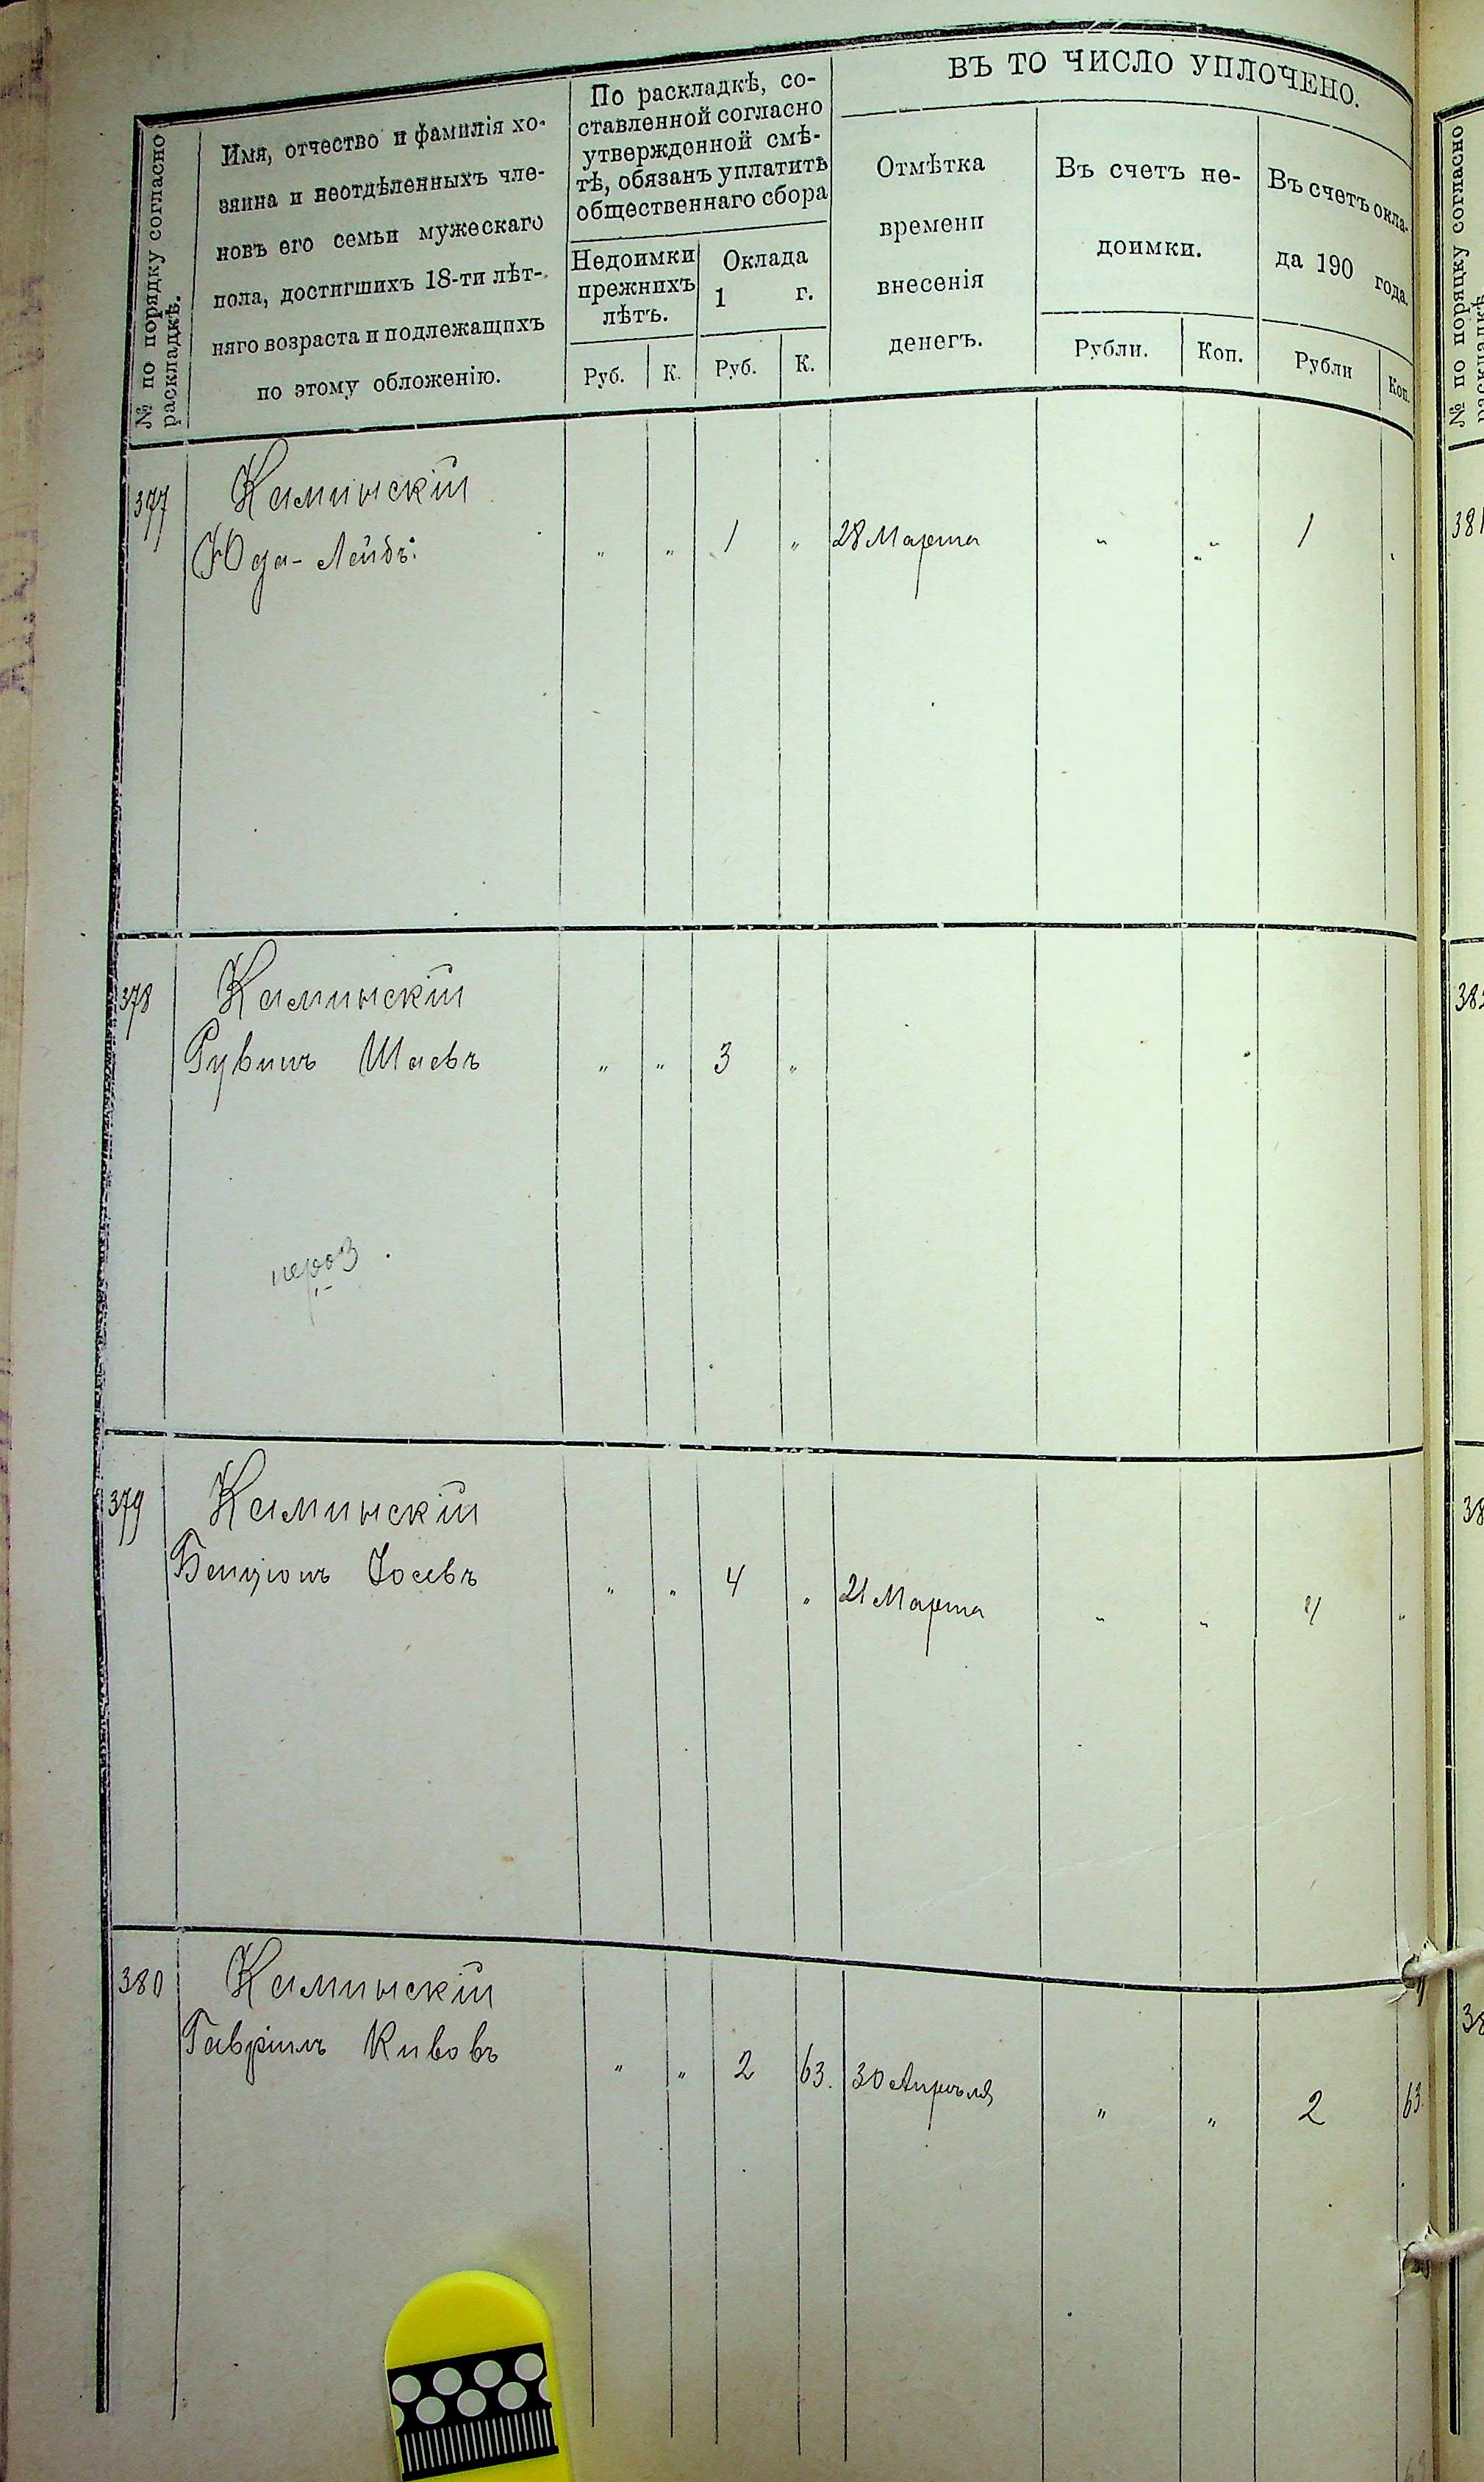 № по порядку согласно
раскладкѣ.
Имя, отчество и фамилія хо-
зяина и неотдѣленныхъ чле-
новъ его семьи мужескаго
пола, достигшихъ 18-ти лѣт-
няго возраста и подлежащихъ
по этому обложенію.
По раскладкѣ, со-
ставленной согласно
утвержденной смѣ-
тѣ, обязанъ уплатить
общественнаго сбора
Недоимки
прежнихъ
лѣтъ.
Руб. К.
Оклада
1 г.
Руб. К.
ВЪ ТО ЧИСЛО УПЛОЧЕНО.
Отмѣтка
времени
внесенія
денегъ.
Въ счетъ не-
доимки.
Рубли. Коп.
Въ счетъ окла-
да 190 года.
Рубли Коп.
377 Каминскій
Юда-Лейбъ. " " 1 " 28 Марта " " 1 "
378 Каминскій
Рувинъ Шаевъ " " 3 "
379 Каминскій
Бенціонъ Іосевъ " " 4 " 21 Марта " " 4 "
380 Каминскій
Гавріилъ Кивовъ " " 2 63. 30 Апрѣля " " 2 63.
№ по порядку согласно
381